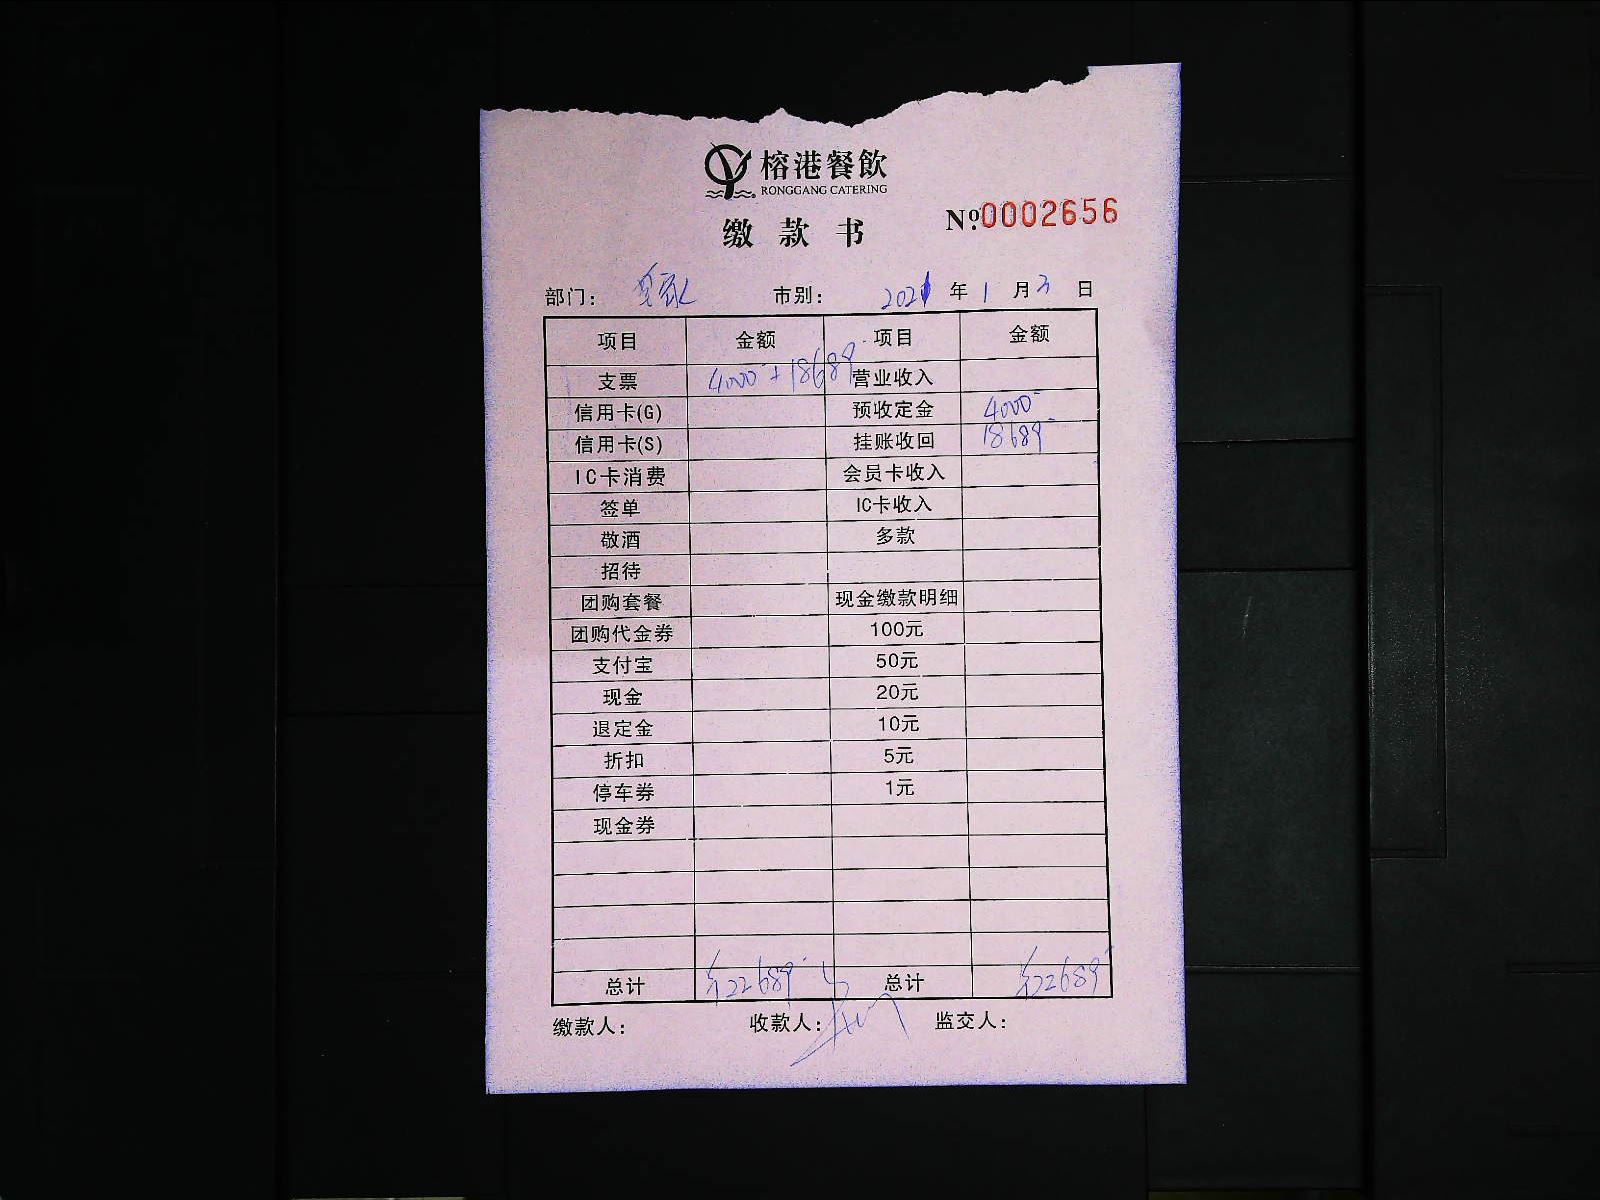 榕港餐飲
RONGGANG CATERING
缴款书
№0002656
部门： 市别： 2021年1月3日
项目 金额 项目 金额
支票 4000+18689 营业收入
信用卡(G) 预收定金 4000-
信用卡(S) 挂账收回 18689-
IC卡消费 会员卡收入
签单 IC卡收入
敬酒 多款
招待
团购套餐 现金缴款明细
团购代金券 100元
支付宝 50元
现金 20元
退定金 10元
折扣 5元
停车券 1元
现金券
总计 22689 总计 22689
缴款人： 收款人： 监交人：